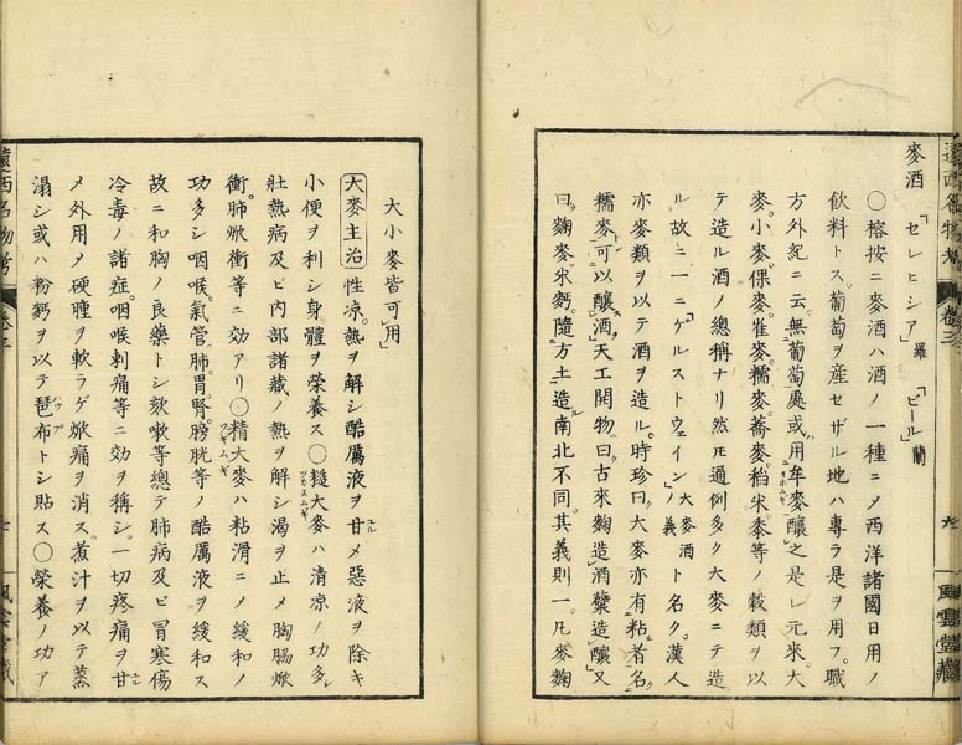 麥酒 「セレヒシア」羅 「ビール」蘭
〇榕按ニ麥酒ハ酒ノ一種ニ〆西洋諸國日用ノ
飲料トス葡萄ヲ産セザル地ハ專ラ是ヲ用フ職
方外紀ニ云無葡萄處或用牟麥釀之是レ元來大
麥小麥倮麥雀麥糯麥蕎麥稻米黍等ノ穀類ヲ以
テ造ル酒ノ總稱ナリ然𪜈通例多ク大麥ニテ造
ル故ニ一ニ「ゲルストウェイン」大麥酒ノ義ト名ク漢人
亦麥類ヲ以テ酒ヲ造ル時珍曰大麥亦有粘者名
糯麥可以釀酒天工開物曰古來麹造酒糵造釀又
曰麹麥米麪隨方土造南北不同其義則一凡麥麹
大小麥皆可用」
大麥主治 性凉熱ヲ解シ酷厲液ヲ甘メ惡液ヲ除キ
小便ヲ利シ身體ヲ榮養ス〇糙大麥ハ清凉ノ功多シ
壯熱病及ビ内部諸藏ノ熱ヲ解シ渴ヲ止メ胸膈焮
衝肺焮衝等ニ効アリ〇精大麥ハ粘滑ニ〆緩和ノ
功多シ咽喉氣管肺胃腎膀胱等ノ酷厲液ヲ緩和ス
故ニ和胸ノ良藥トシ欬嗽等總テ肺病及ビ冒寒傷
冷毒ノ諸症咽喉刺痛等ニ効ヲ稱シ一切疼痛ヲ甘
メ外用〆硬腫ヲ軟ラゲ焮痛ヲ消ス煮汁ヲ以テ蒸
溻シ或ハ粉麪ヲ以テ琶布トシ貼ス〇榮養ノ功ア